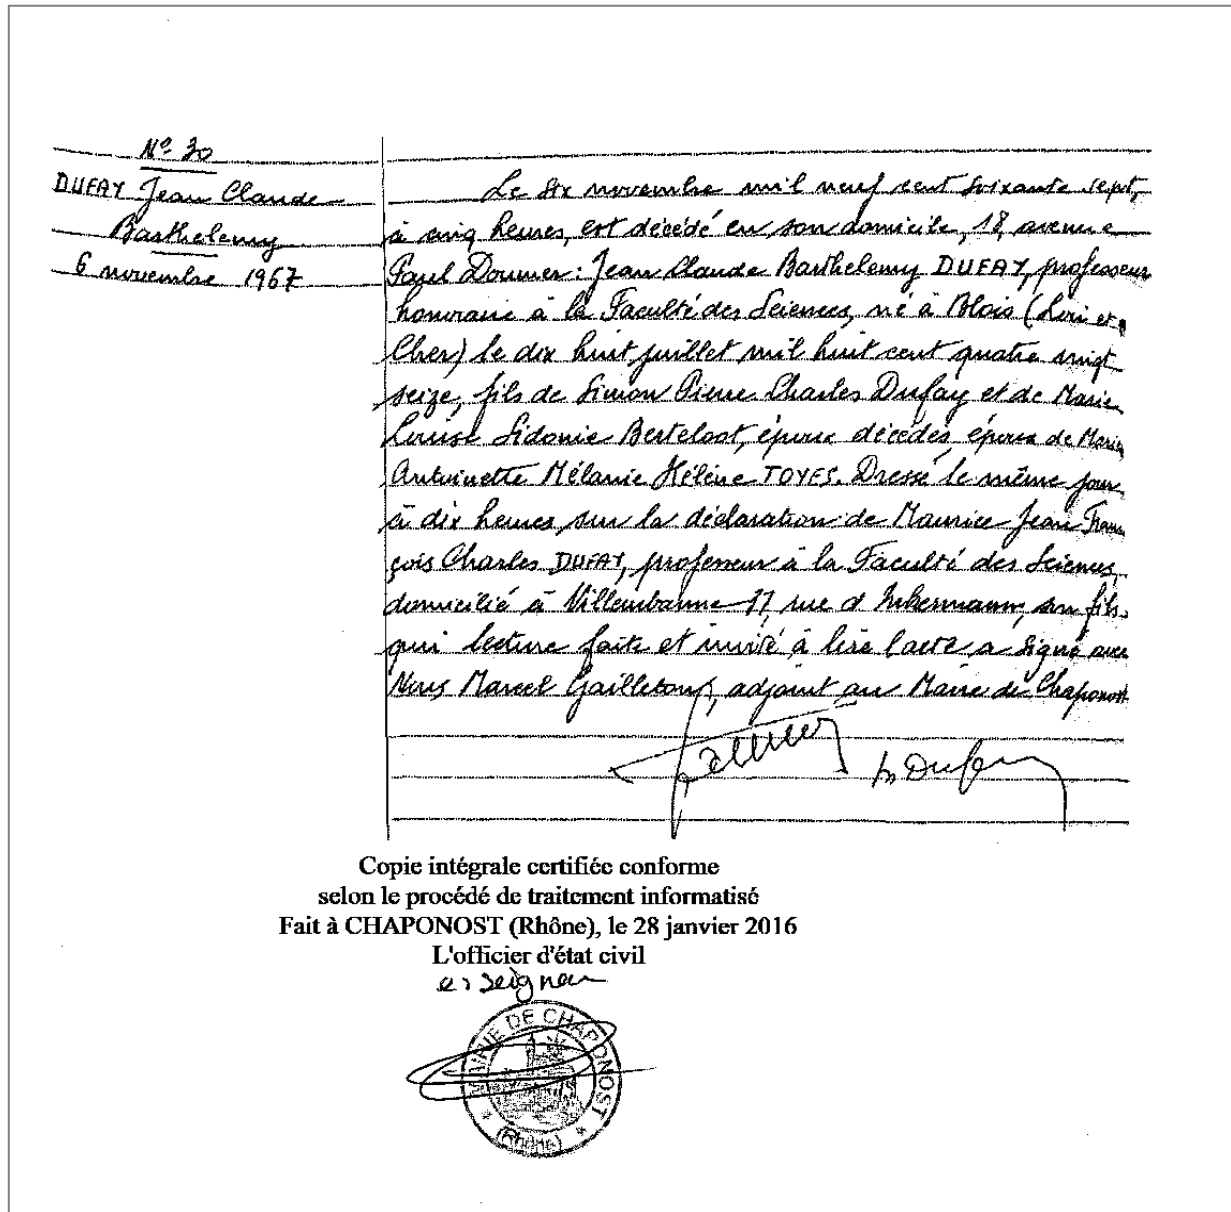 Nº 30
DUFAY Jean Claude
Barthelemy
6 novembre 1967
Le six novembre mil neuf cent soixante sept,
à cinq heures, est décédé en son domicile, 18, avenue
Paul Doumer : Jean Claude Barthelemy DUFAY, professeur
honoraire à la Faculté des Sciences, né à Blois (Loir et
Cher) le dix huit juillet mil huit cent quatre vingt
seize, fils de Simon Pierre Charles Dufay et de Marie
Louise Sidonie Berteloot, époux décédés, époux de Marie
Antoinette Mélanie Hélène TOYES. Dressé le même jour
à dix heures, sur la déclaration de Maurice Jean Fran
çois Charles DUFAY, professeur à la Faculté des Sciences,
domicilié à Villeurbanne 77, rue d'Inkermann, son fils,
qui lecture faite et invité à lire l'acte, a signé avec
Nous Marcel Gailleton, adjoint au Maire de Chaponost
Dufay
Copie intégrale certifiée conforme
selon le procédé de traitement informatisé
Fait à CHAPONOST (Rhône), le 28 janvier 2016
L'officier d'état civil
MAIRIE DE CHAPONOST
* (Rhône) *